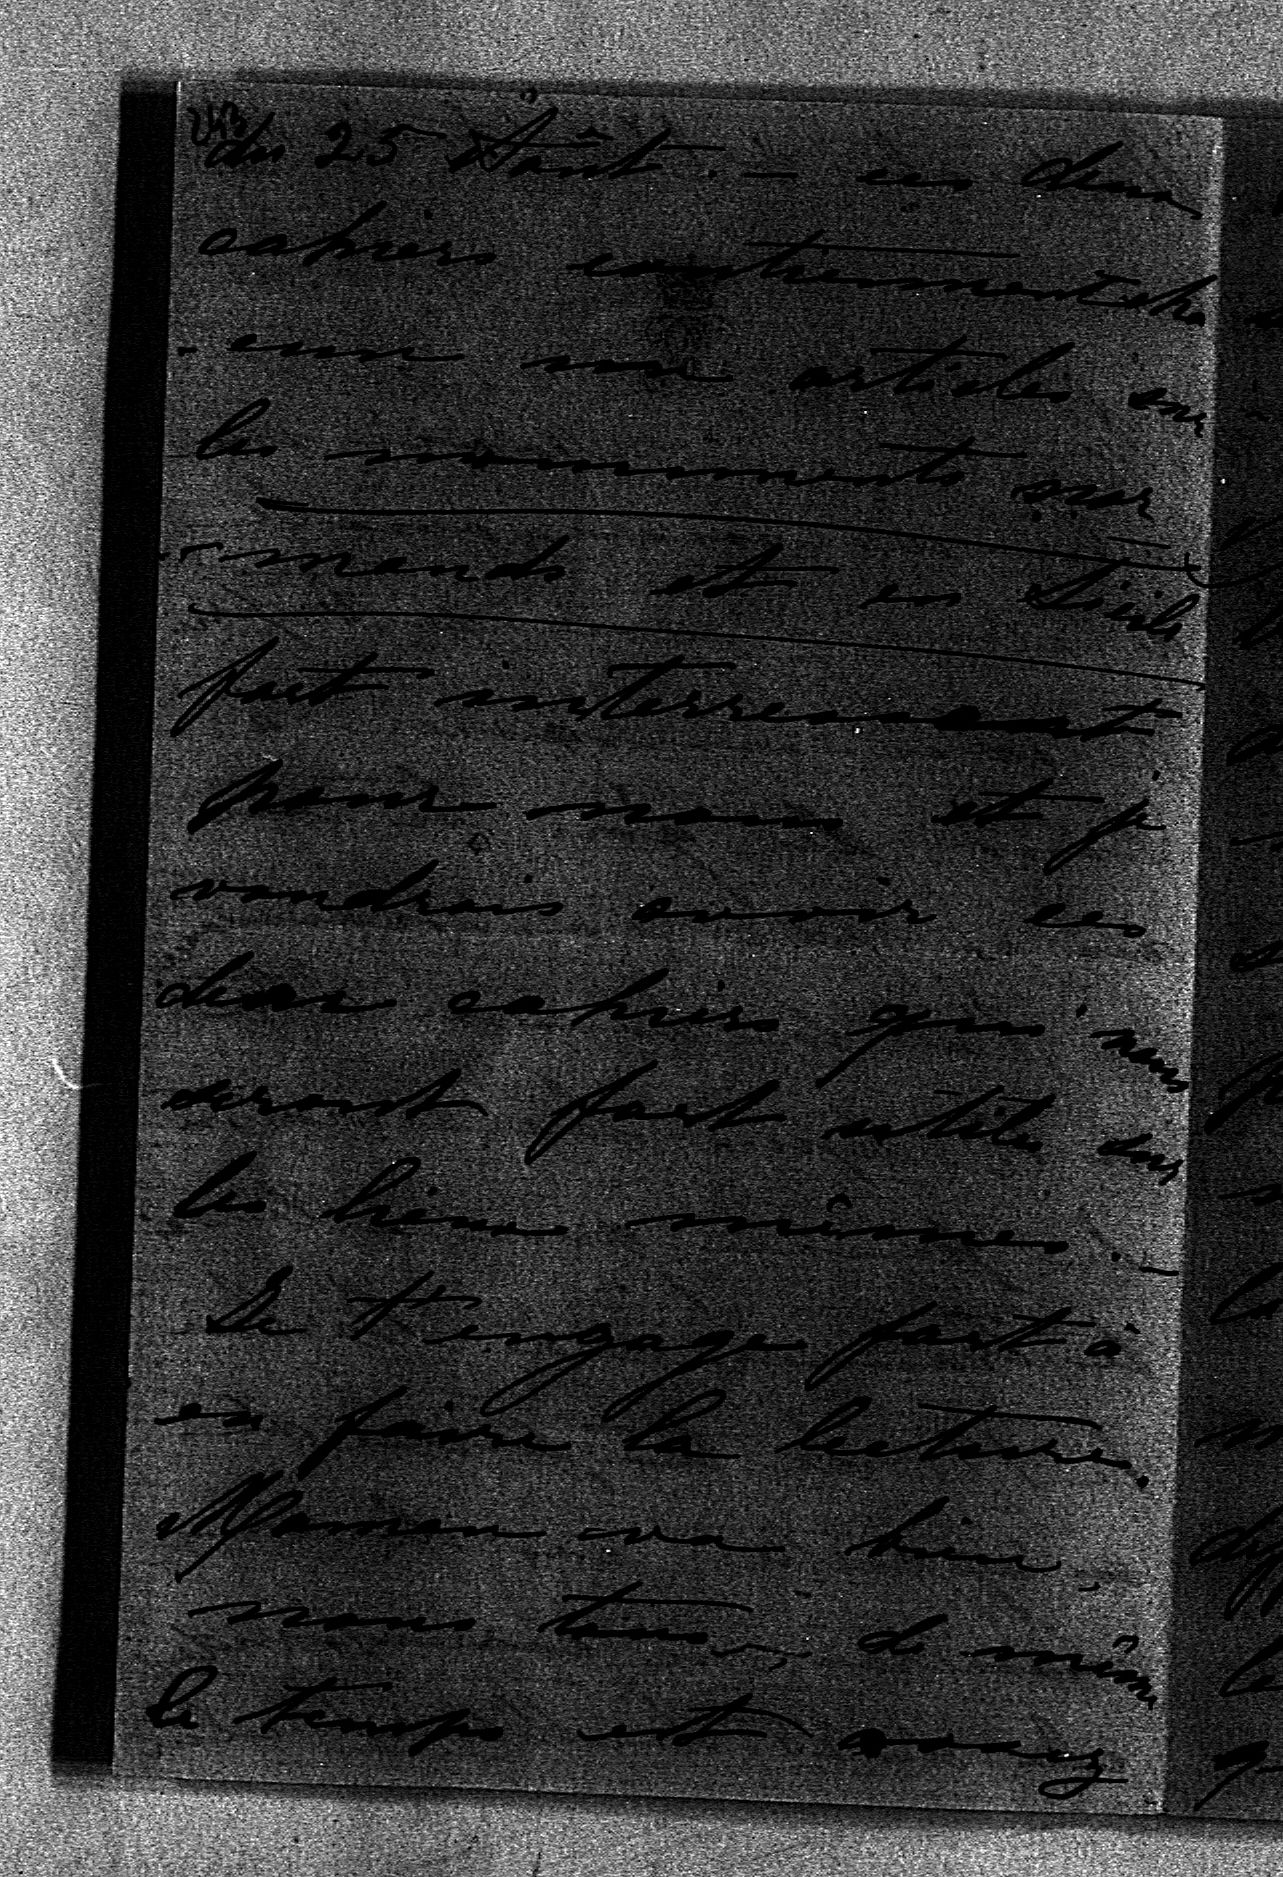 du 25 Août. — ces deux
cahiers contiennent cha
-cun un articles sur
les monuments nor
-mands et en Sicile
fort interressant
pour nous et je
voudrais avoir ces
deux cahiers qui nous
seront fort utiles sur
les lieux mêmes. —
Je t'engage fort à
en faire la lecture.
Maman va bien,
nous tous, de même
le temps est assez